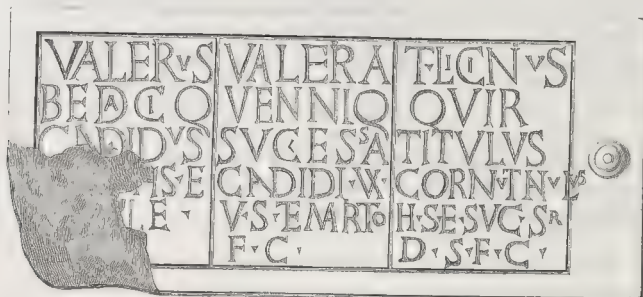 VALERVS
BEDAICO
CADIDVS
HS·E
LE·
VALERA
VENNIO
SVCESSA
CADIDI·W·
V·S·EMARITO
F·C·
T·LICIN·VS
QVIR
TITVLVS
CORN·TN·VLVS
H·SE·SVC·SR
D·S·F·C·